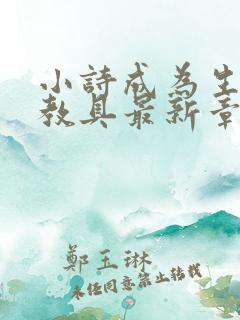 小詩成為生
教具最新章
鄭玉琳
未經同意禁止轉載